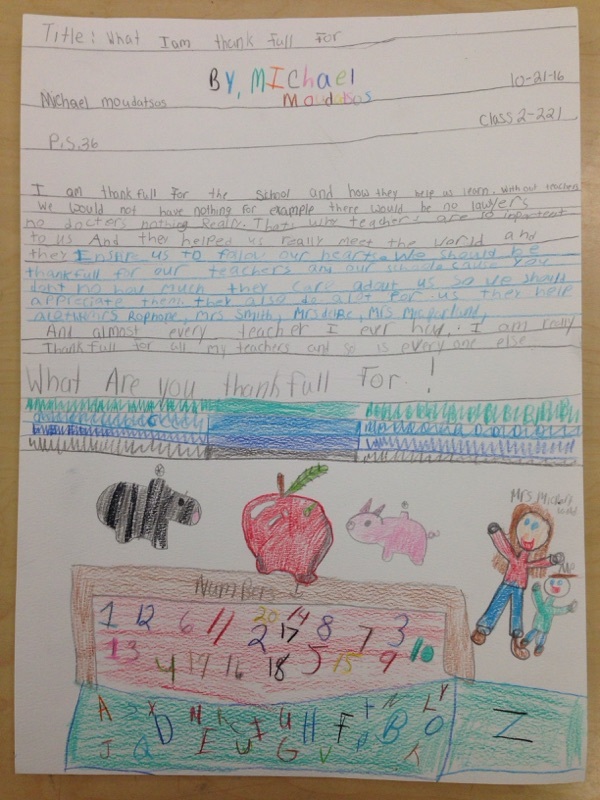 Title: What I am thank full for
BY, MIChael
Moudatsos
10-21-16
Michael moudatsos
Class 2-221
P.S. 36
I am thankfull for the school and how they help us learn. without teachers
We would not have nothing for example there would be no lawyers
no docters nothing Really. That's why teachers are so inportent
to us And they helped us really meet the world and
they Inspire us to follow our hearts. We should be
thankfull for our teachers and our schools cause you
dont no how much they care adout us so we should
appriciate them. they also do alot for us they help
alot Mrs Mrs Smith,
And almost every teacher I ever had. I am really
Thankfull for all my teachers and so is every one else.
What Are you thankfull For !
Mrs,
Me
Numbers
1 12 6 11 20 14 2 17 8 7 3
13 4 17 16 18 5 15 9 10
A X D N K I U H F T N B L Y O Z
J Q E U G V P